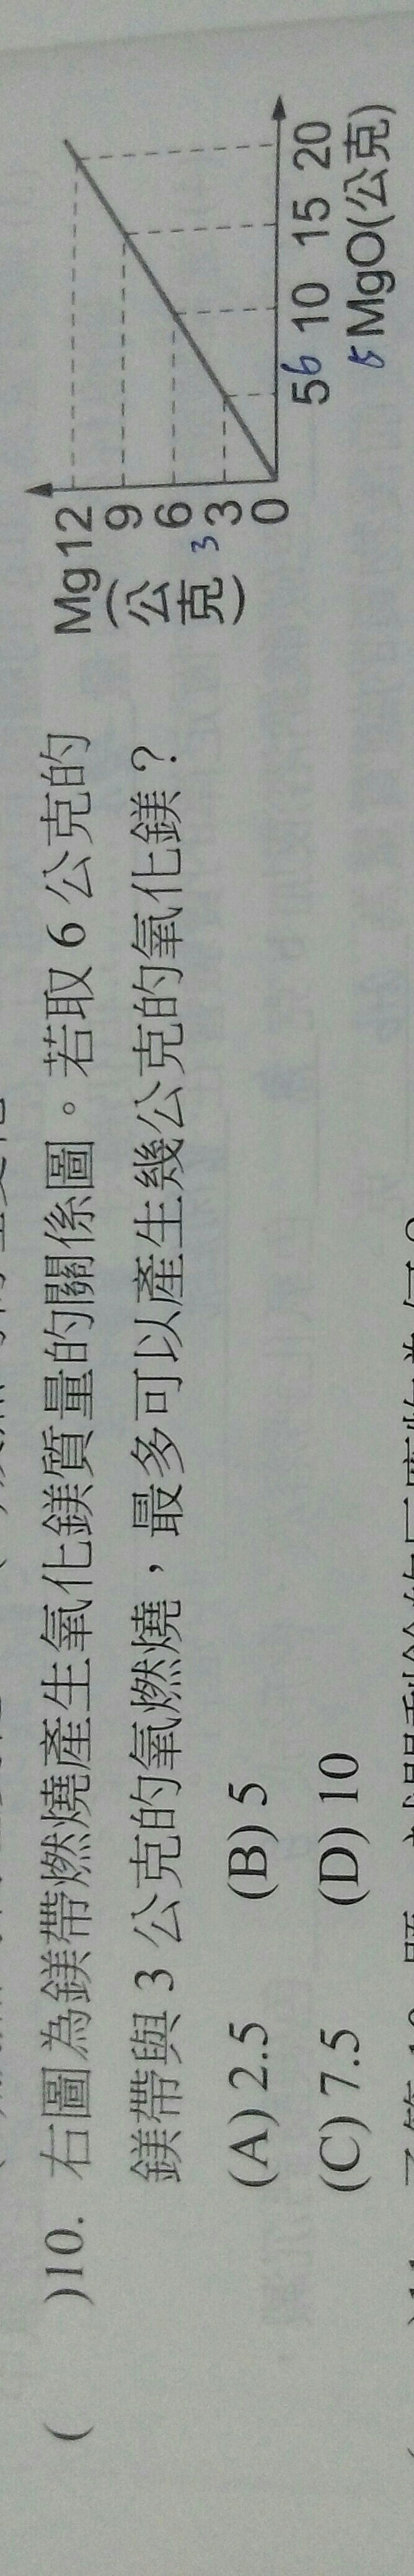 ( )10. 右圖為鎂帶燃燒產生氧化鎂質量的關係圖。若取 6 公克的
鎂帶與 3 公克的氧燃燒，最多可以產生幾公克的氧化鎂？
(A) 2.5 (B) 5
(C) 7.5 (D) 10
Mg 12
(公克)
9
6
3 3
0
5 6 10 15 20
MgO(公克)